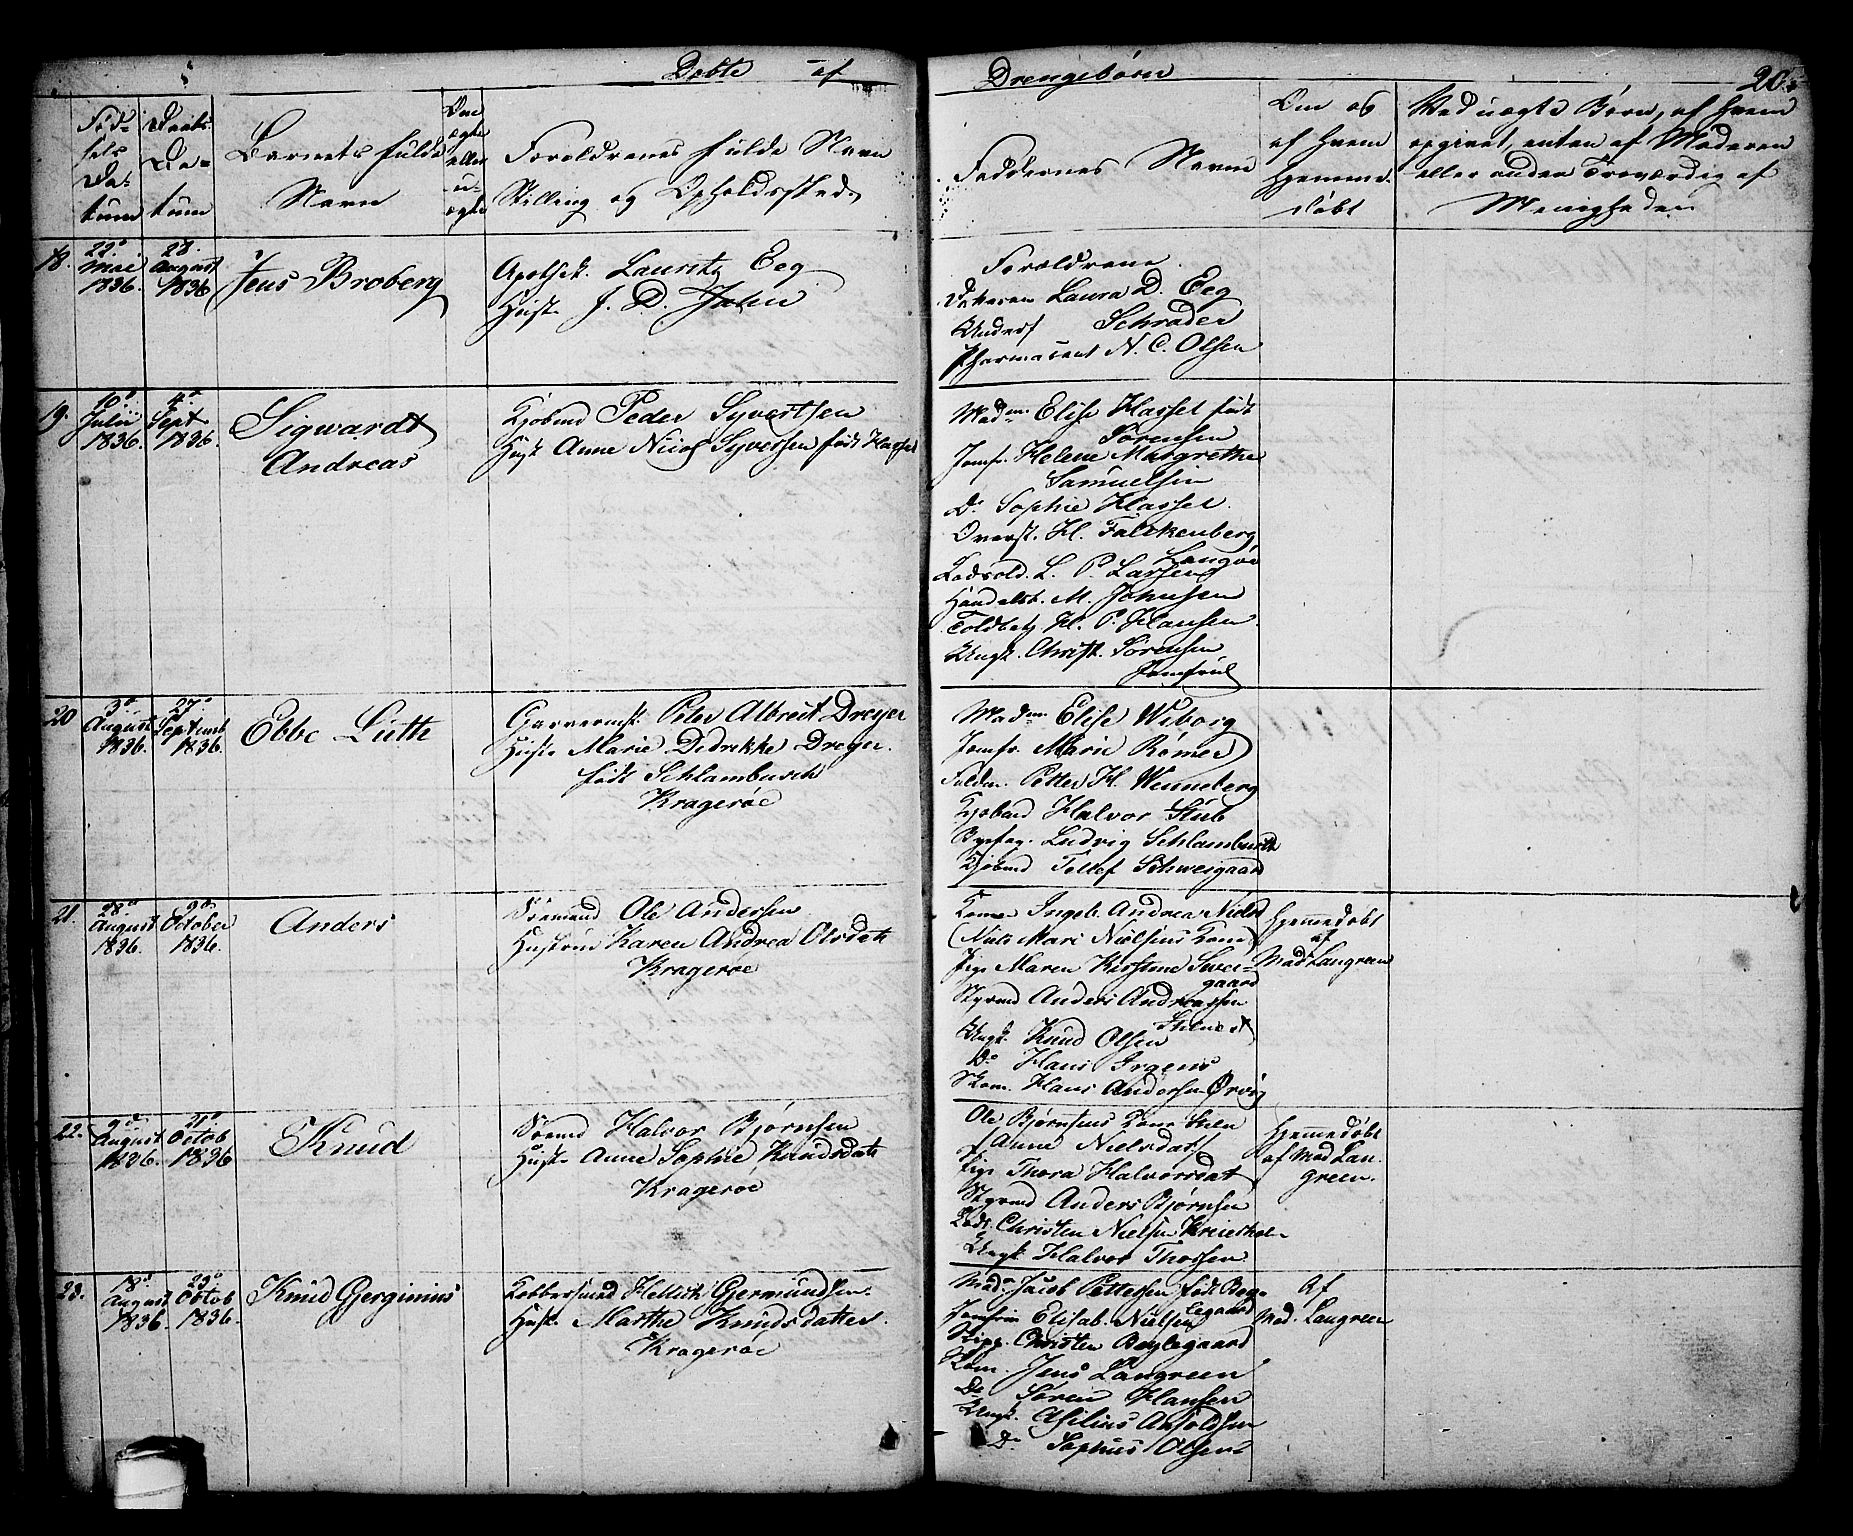 Døbte af
Drengebørn 20.
Fød-
sels
Da-
tum
Daabs
Da-
tum
Barnets fulde
Navn
Om
ægte
eller
u-
ægte
Forældrenes fulde Navn
Stilling og Opholdssted
Faddernes Navn
Om og
af hvem
Hjemme-
døbt
Ved uægte Børn, af hvem
opgivet, enten af Moderen
eller anden Troværdig af
Menigheden
18.
22de
Mai
1836.
28.
August
1836
Jens Broberg
Apothek. Lauritz Eeg
Hust. J. D. Jahn
Forældrene.
Laura D. Eeg
Schrøder
Pharmaceut N. C. Olsen
19.
10de
Julii
1836.
4de
Sept
1836.
Sigwardt
Andreas
Kjøbmd Peder Syvertsen
Hust Anne Syvertsen født Hassel
Madm. Elise Hassel født
Sørensen
Jomfr. Helene Margrethe
Samuelsen
Do Sophie Hassel.
Overst. H. Falckenberg
Langøe
Lodsold. L. P. Larsen
Handelsb. M. Johnsen
Toldbetj H. P. Hansen.
Ungk. Christ. Sørensen
20
3de
August
1836.
27de
Septemb
1836.
Ebbe Lüth
Garvermst. Peter Albrect Dreyer
Hust. Marie Dedrekke Dreyer.
født Schlambusch
Kragerøe
Madm. Elise Wiborg
Jomfr Marie Rømer
Fuldm. Petter H. Wenneberg
Kjøbmd Halvor Stub
Byefog. Ludvig Schlambusch
Kjøbmd Tollef Schweigaard
21.
28de
August
1836.
9de
October
1836.
Anders
Sømand Ole Andersen
Hustrue Karen Andrea Olsdatt
Kragerøe
Kone Ingeb. Andrea Nielsd
(Niels Mari Nielsens Kone)
Pige Maren Kirstine Swei-
gaard
Styrmd Anders Andreassen
Ungk. Knud Olsen
Do Hans Irgens
Skom. Hans Andersen Ørvig
Hjemmedøbt
af
Mad Langreen
22.
9de
August
1836.
21de
Octob
1836
Knud
Sømd Halvor Bjørnsen
Hust. Anne Sophie Knudsdatt
Kragerøe
Ole Bjørnsens Kone
Anne Nielsdatt
Pige Thora Halvorsdat
Styrmd Anders Bjørnsen
Lods. Christen Nielsen
Ungk Halvor Thorsen
Hjemmedøbt
af Mad Lan-
green.
23.
18de
August
1836.
23de
Octob
1836.
Knud Gjerginius
Kobbersmed Hellick Gjermundsen.
Hust. Marthe Knudsdatter.
Kragerøe
Mad. Jacob Pettersen født Bøy-
legaard
Jomfrue Elisab. Nielsen
Skipp. Christen Bøylegaard
Kom. Jens Langreen
Do Søren Hansen
Ungk. Asilius Arnoldsen
Do Sophus Olsen
Af
Mad. Langreen